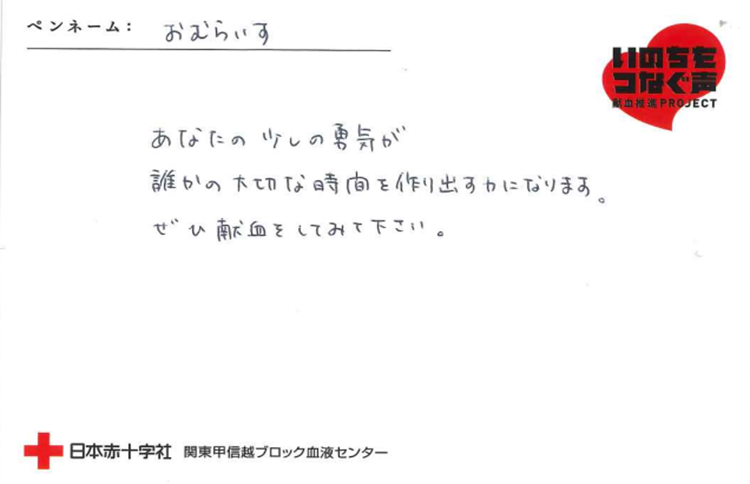 ペンネーム: おむらいす
いのちを
つなぐ声
献血推進PROJECT
あなたの少しの勇気が
誰かの大切な時間を作り出す力になります。
ぜひ献血をしてみて下さい。
日本赤十字社 関東甲信越ブロック血液センター